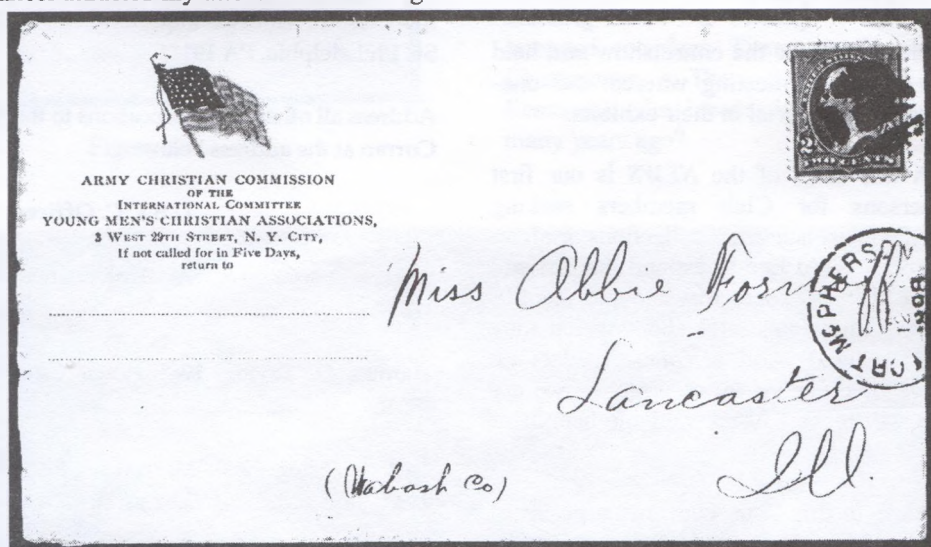 ARMY CHRISTIAN COMMISSION
OF THE
INTERNATIONAL COMMITTEE
YOUNG MEN'S CHRISTIAN ASSOCIATIONS,
3 WEST 29TH STREET, N. Y. CITY,
If not called for in Five Days,
return to
2
FORT MCPHERS
Miss Abbie
Lancaster
Ill.
(Wabash Co)